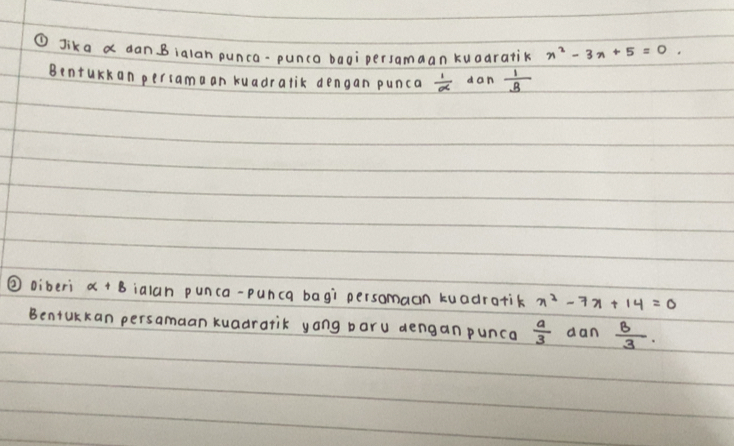 ① Jika α dan β ialah punca-punca bagi persamaan kuadratik x² - 3x + 5 = 0.
Bentukkan persamaan kuadratik dengan punca 1/α dan 1/β
② Diberi α + β ialah punca-punca bagi persamaan kuadratik x² - 7x + 14 = 0
Bentukkan persamaan kuadratik yang baru dengan punca a/3 dan β/3.